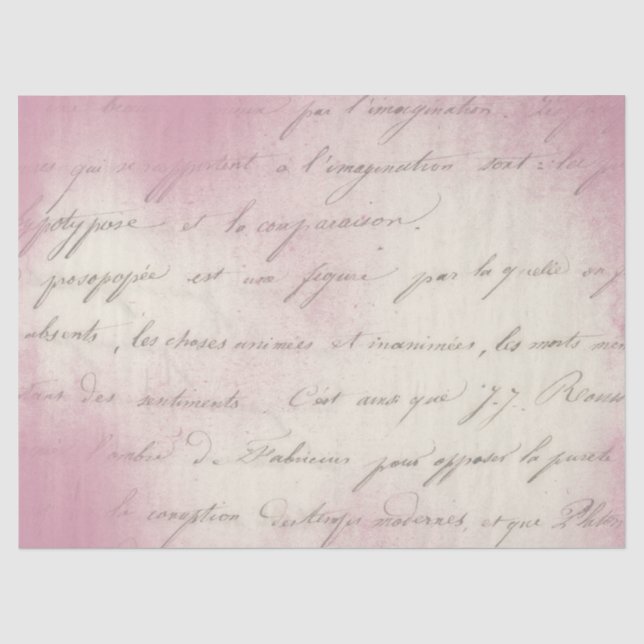 par l'imagination. Les
qui se rapportent a l'imagination sont: les
hypotypose et la comparaison.
prosopopée est une figure par la quelle on f
absents, les choses animées et inanimées, les morts mem
des sentiments. C'est ainsi que J. J. Rouss
l'ombre de Fabricius pour opposer la pureté
la coruption des temps modernes, et que